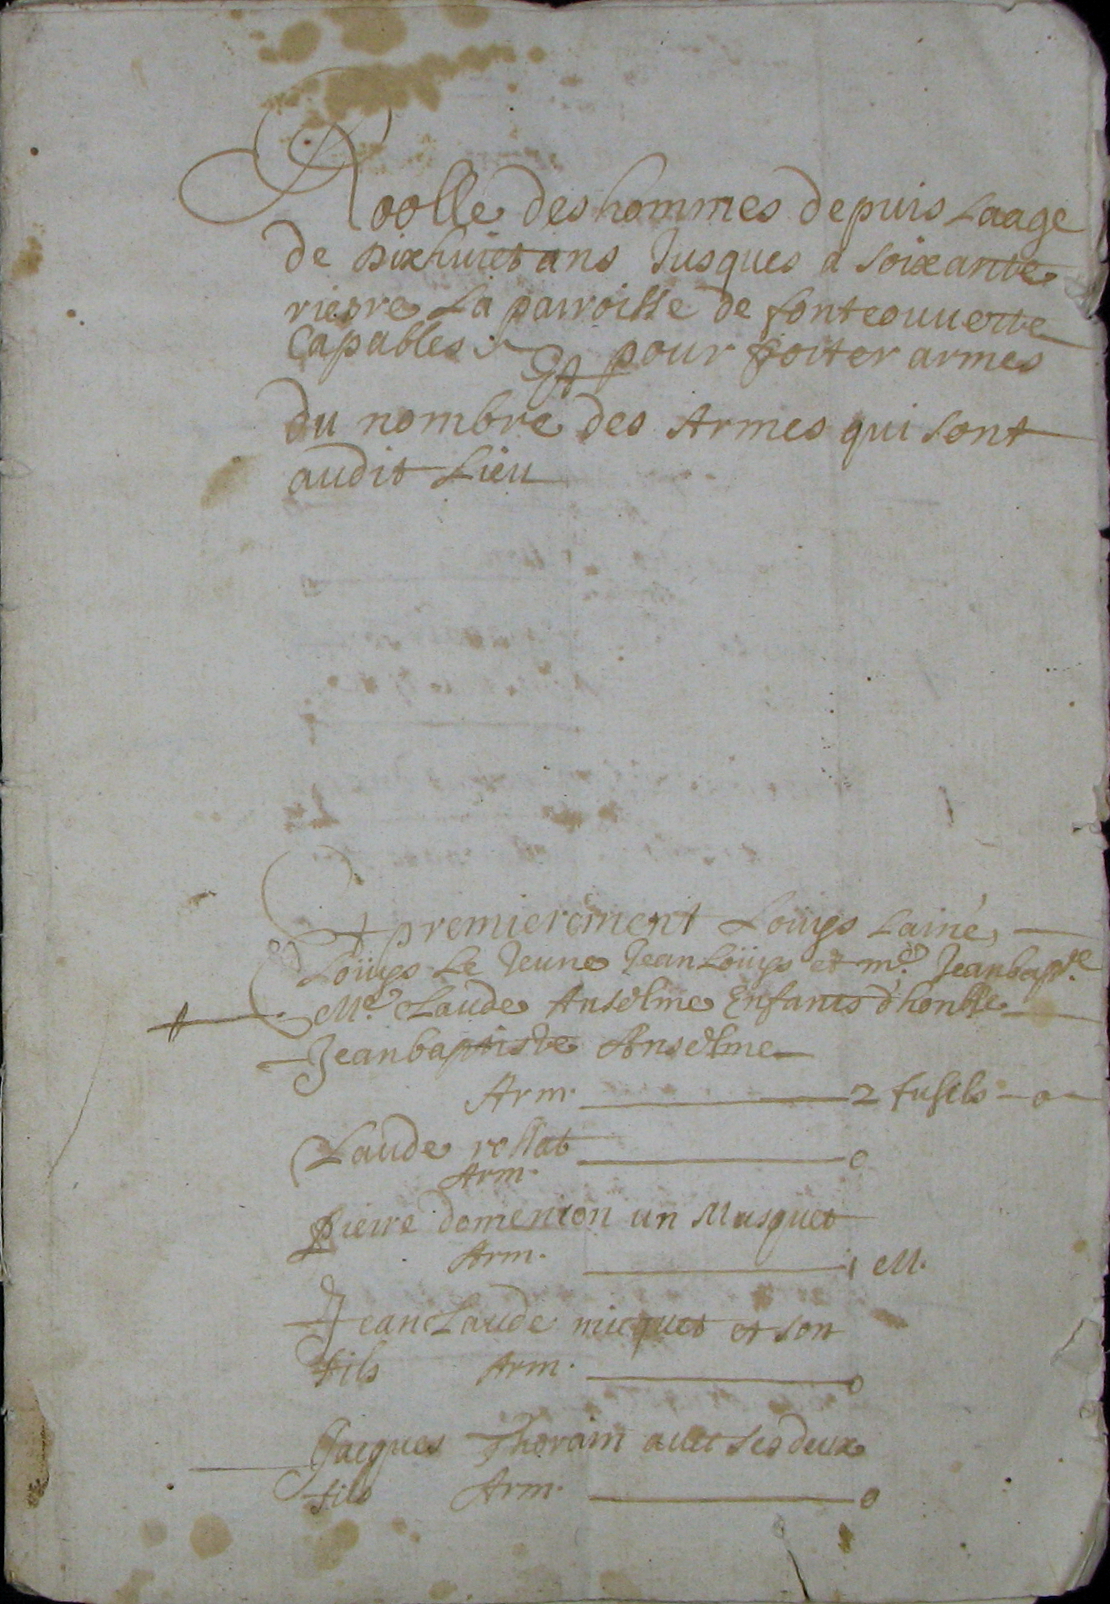 Roolle des hommes depuis Laage
de Dixhuict ans Jusques a soixante
riere La parroisse de fontcouuerte
Capables pour porter armes
Et
du nombre des Armes qui sont
audit Lieu
Et premierement Louys Lainé,
Louys Le Jeune Jean Louys et me. Jeanbapte
Me. Claude Anselme Enfants d'honble
Jeanbaptiste Anselme
Arm. 2 fusils - o -
Claude rossat
Arm. o
pierre domenion un Musquet
Arm. 1 M.
Jean Claude micquet et son
fils Arm. o
Jacques Thorain auec ses deux
fils Arm. o